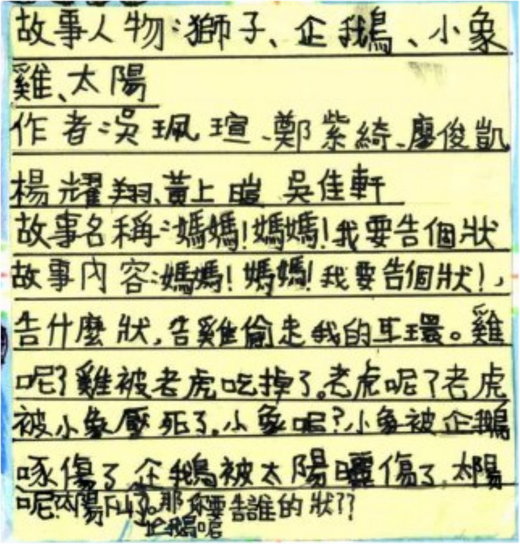 故事人物:獅子、企鵝、小象
雞、太陽
作者:吳珮瑄、鄭紫綺、廖俊凱
楊耀翔、黃上暟、吳佳軒
故事名稱:媽媽!媽媽!我要告個狀
故事內容:媽媽!媽媽!我要告個狀!,
告什麼狀,告雞偷走我的耳環。雞
呢?雞被老虎吃掉了。老虎呢?老虎
被小象壓死了。小象呢?小象被企鵝
啄傷了,企鵝被太陽曬傷了,太陽
呢?太陽下山了。那你要告誰的狀??
企鵝呢